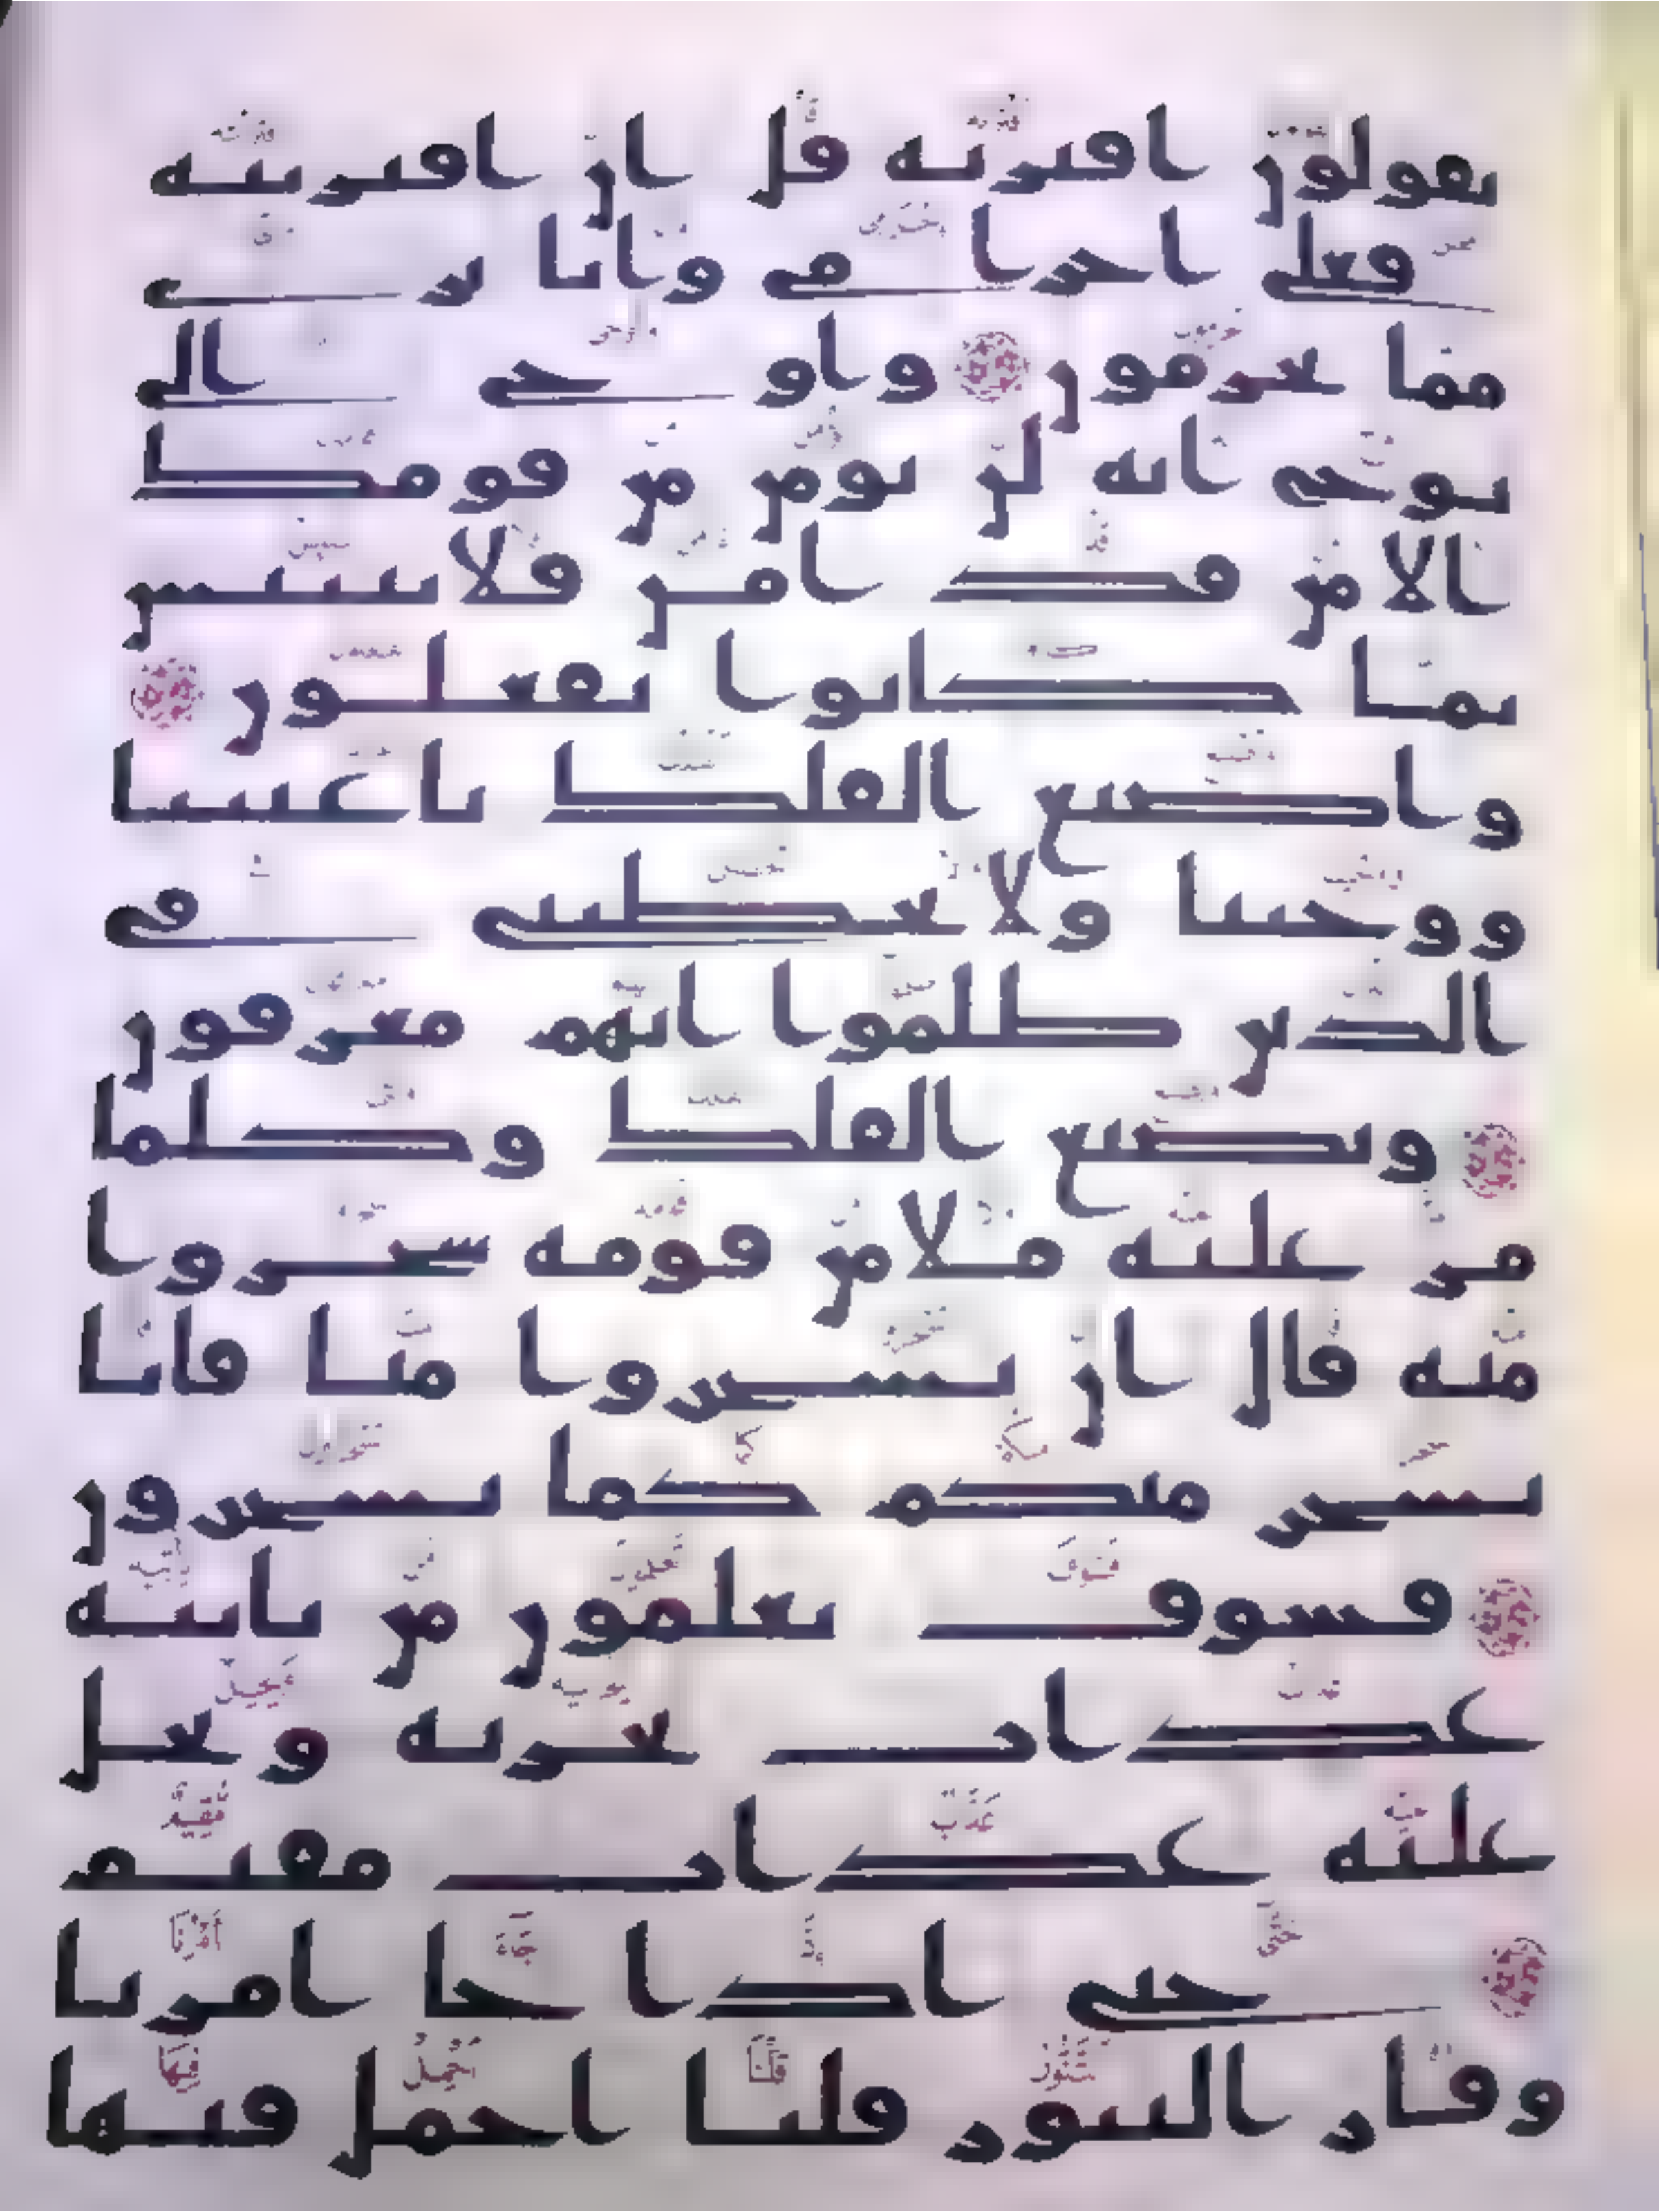 يقولون افتريه قل ان افتريته
فعلى اجرامى وانا برى
مما تجرمون واوحى الى
نوح انه لن يومن من قومك
الا من قد امن فلا تبتئس
بما كانوا يفعلون
واصنع الفلك باعيننا
ووحينا ولا تخطبنى فى
الذين ظلموا انهم مغرقون
ويصنع الفلك وكلما
مر عليه ملا من قومه سخروا
منه قال ان تسخروا منا فانا
نسخر منكم كما تسخرون
فسوف تعلمون من ياتيه
عذاب يخزيه ويحل
عليه عذاب مقيم
حتى اذا جا امرنا
وفار التنور قلنا احمل فيها